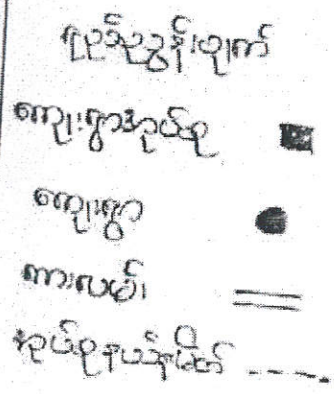 ရည်ညွှန်းချက်
ကျေးရွာအုပ်စု
ကျေးရွာ
ကားလမ်း
အုပ်စုနယ်နိမိတ်